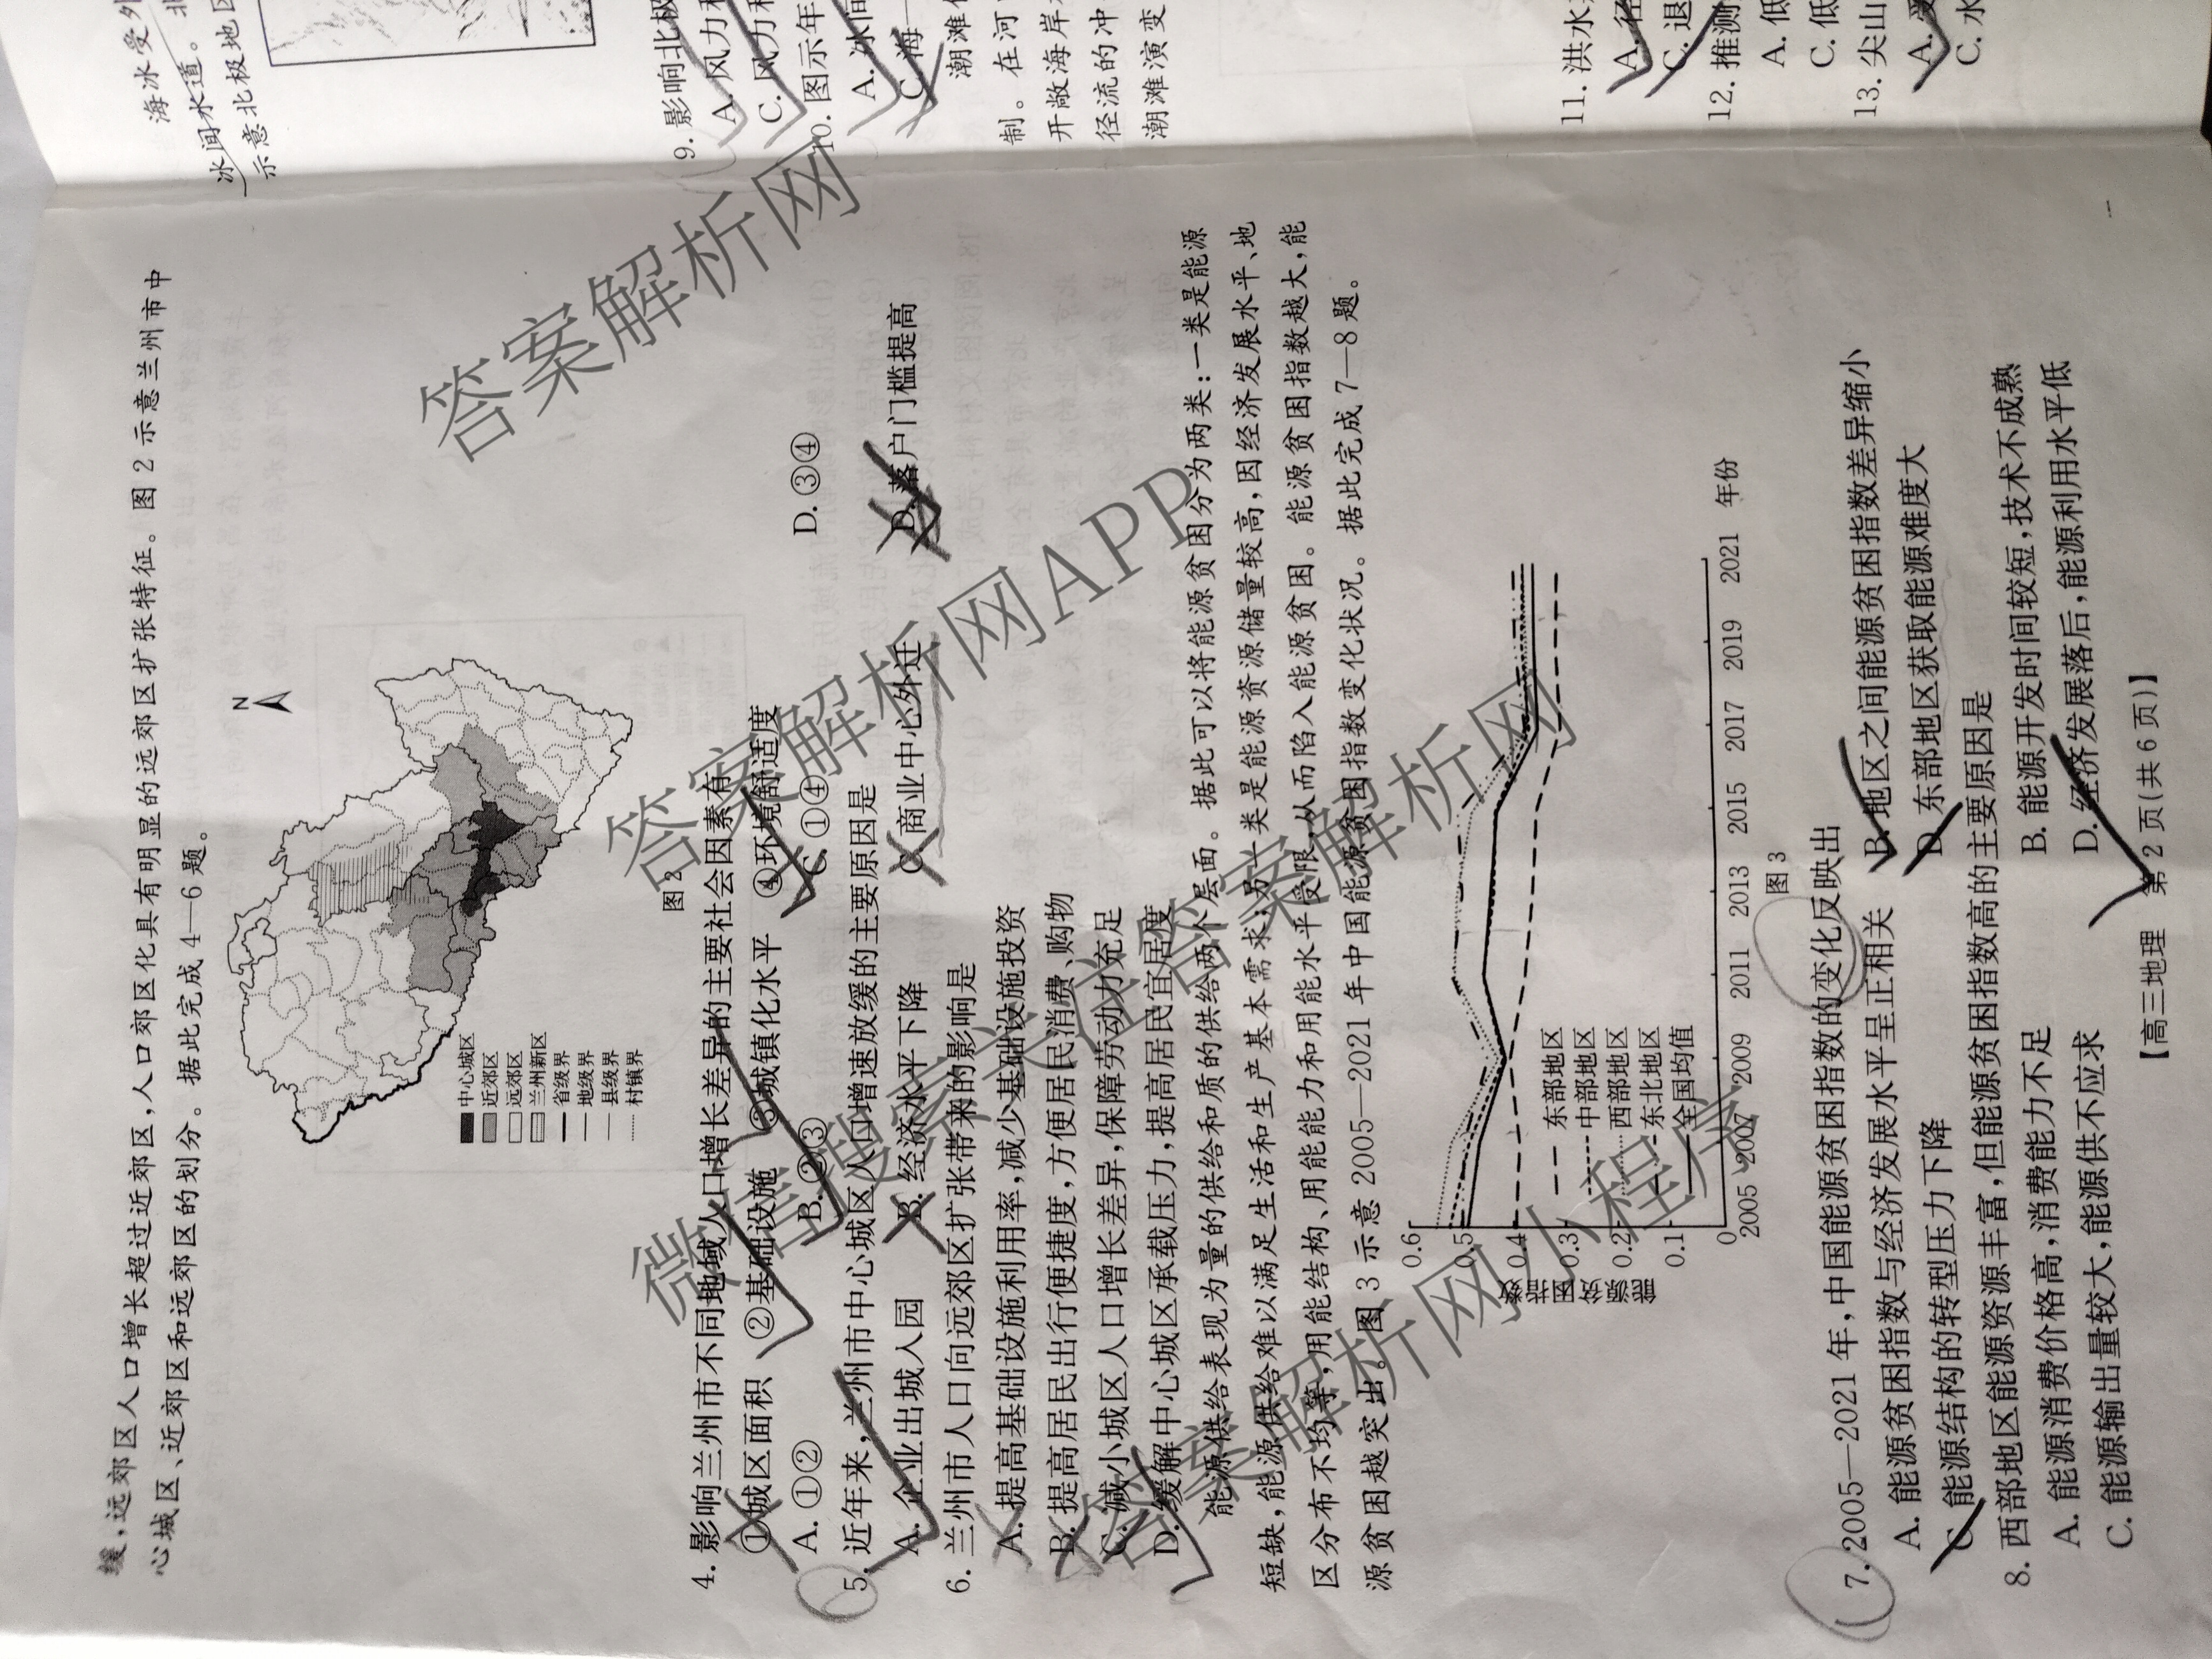 缓,远郊区人口增长超过近郊区,人口郊区化具有明显的远郊区扩张特征。图2示意兰州市中
心城区、近郊区和远郊区的划分。据此完成4—6题。
N
中心城区
近郊区
远郊区
兰州新区
省级界
地级界
县级界
村镇界
图2
4. 影响兰州市不同地域人口增长差异的主要社会因素有
①城区面积 ②基础设施 ③城镇化水平 ④环境舒适度
A. ①② B. ②③ C. ①④ D. ③④
5. 近年来,兰州市中心城区人口增速放缓的主要原因是
A. 企业出城入园 B. 经济水平下降 C. 商业中心外迁 D. 落户门槛提高
6. 兰州市人口向远郊区扩张带来的影响是
A. 提高基础设施利用率,减少基础设施投资
B. 提高居民出行便捷度,方便居民消费、购物
C. 减小城区人口增长差异,保障劳动力充足
D. 缓解中心城区承载压力,提高居民宜居度
能源供给表现为量的供给和质的供给两个层面。据此可以将能源贫困分为两类:一类是能源
短缺,能源供给难以满足生活和生产基本需求;另一类是能源资源储量较高,因经济发展水平、地
区分布不均等,用能结构、用能能力和用能水平受限,从而陷入能源贫困。能源贫困指数越大,能
源贫困越突出。图3示意2005—2021年中国能源贫困指数变化状况。据此完成7—8题。
能源贫困指数
0.6
0.5
0.4
0.3
0.2
0.1
0
东部地区
中部地区
西部地区
东北地区
全国均值
2005 2007 2009 2011 2013 2015 2017 2019 2021 年份
图3
7. 2005—2021年,中国能源贫困指数的变化反映出
A. 能源贫困指数与经济发展水平呈正相关 B. 地区之间能源贫困指数差异缩小
C. 能源结构的转型压力下降 D. 东部地区获取能源难度大
8. 西部地区能源资源丰富,但能源贫困指数高的主要原因是
A. 能源消费价格高,消费能力不足 B. 能源开发时间较短,技术不成熟
C. 能源输出量较大,能源供不应求 D. 经济发展落后,能源利用水平低
【高三地理 第2页(共6页)】
海冰受外
冰间水道。北
示意北极地区
9. 影响北极
A. 风力和
C. 风力和
10. 图示年
A. 冰间
C. 海
潮滩
制。在河
开敞海岸
径流的冲
潮滩演变
11. 洪水
A. 径
C. 退
12. 推测
A. 低
C. 低
13. 尖山
A. 受
C. 水
答案解析网
答案解析网APP
微信搜索关注答案解析网
答案解析网小程序